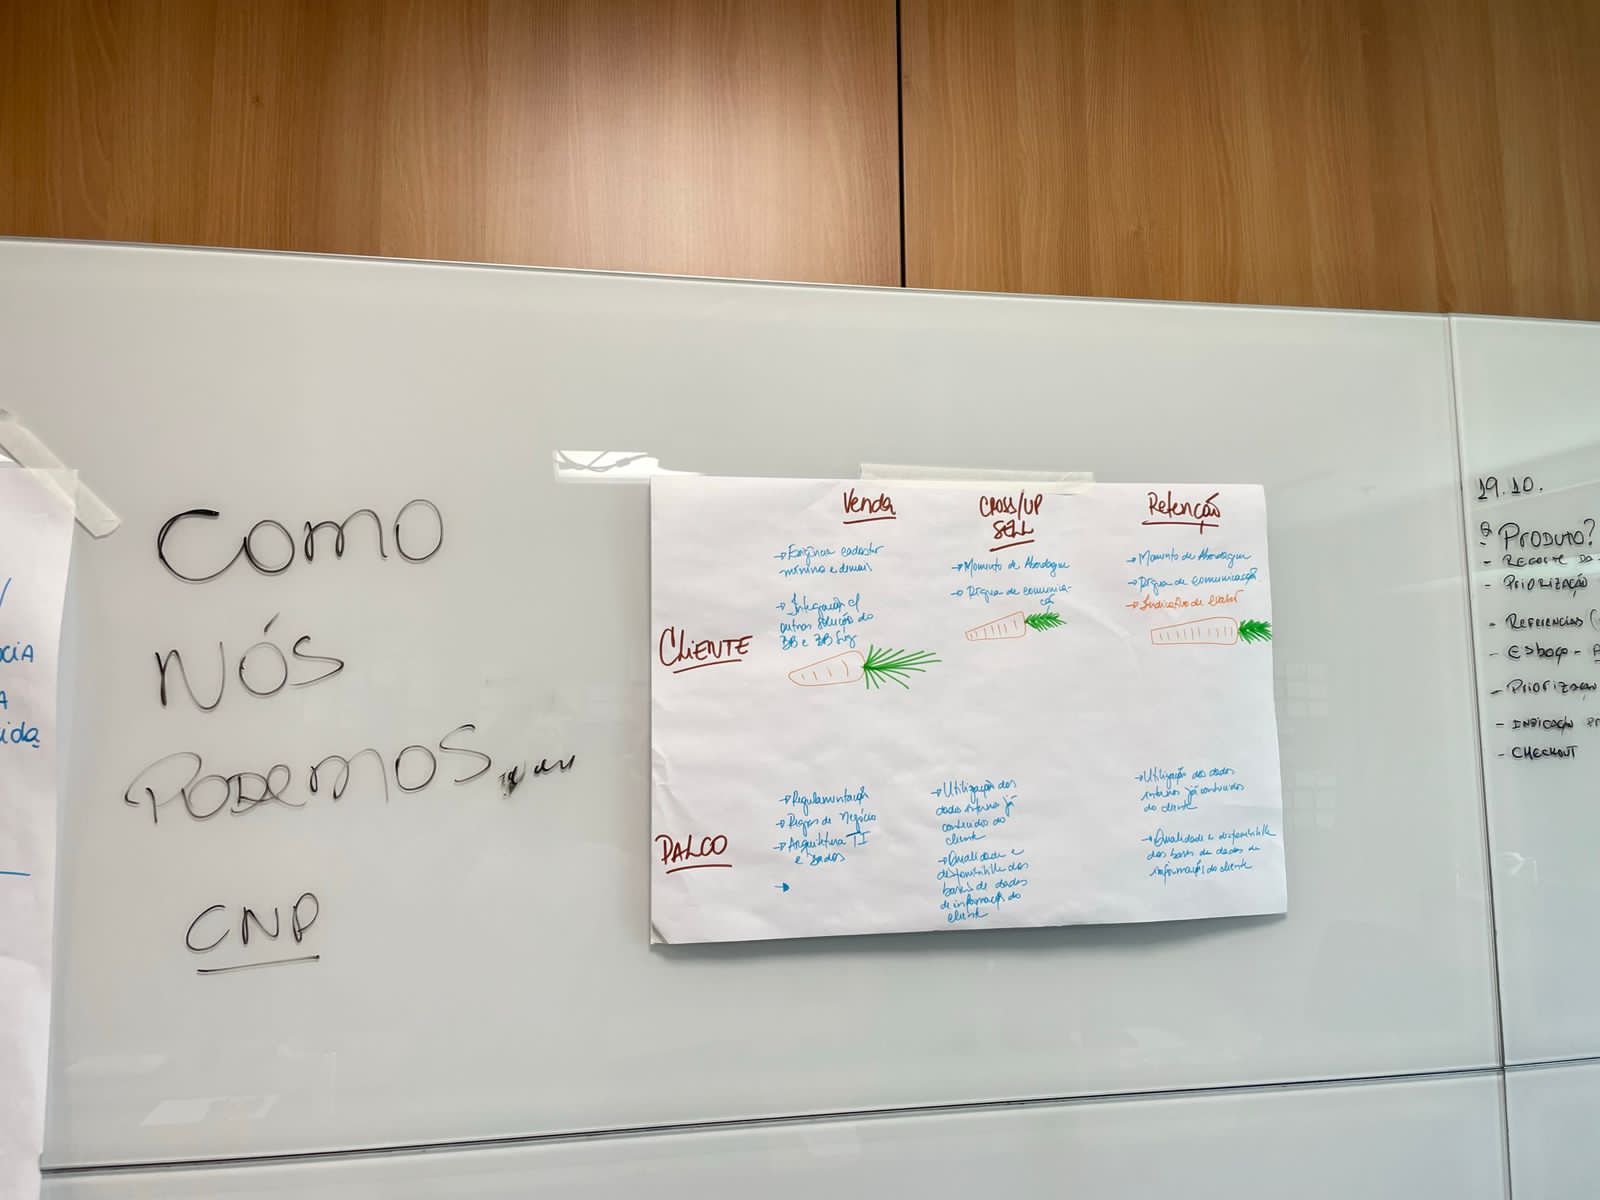 COMO
NÓS
PODEMOS
CNP
Venda
CROSS/UP
SELL
Retenção
CLIENTE
→ Exigência cadastro
mínimo e demais
→ Integração c/
outras solução do
BB e BB Seg
→ Momento de Abordagem
→ Régua de comunica-
ção
→ Momento de Abordagem
→ Régua de comunicação
→ Indicativo de
PALCO
→ Regulamentação
→ Regras de Negócio
→ Arquitetura TI
e Dados
→
→ Utilização dos
dados interno já
conteúdos do
cliente
→ Qualidade e
disponibilide das
bases de dados
de informação do
cliente
→ Utilização dos dados
interno já conteúdos
do cliente
→ Qualidade e disponibilide
das bases de dados de
informação do cliente
19.10.
PRODUTO?
- RECORTE DA
- PRIORIZAÇÃO
- REFERENCIAS (
- ESBOÇO -
- PRIORIZAÇÃO
- INDICAÇÃO PR
- CHECKOUT
CIA
A
ida